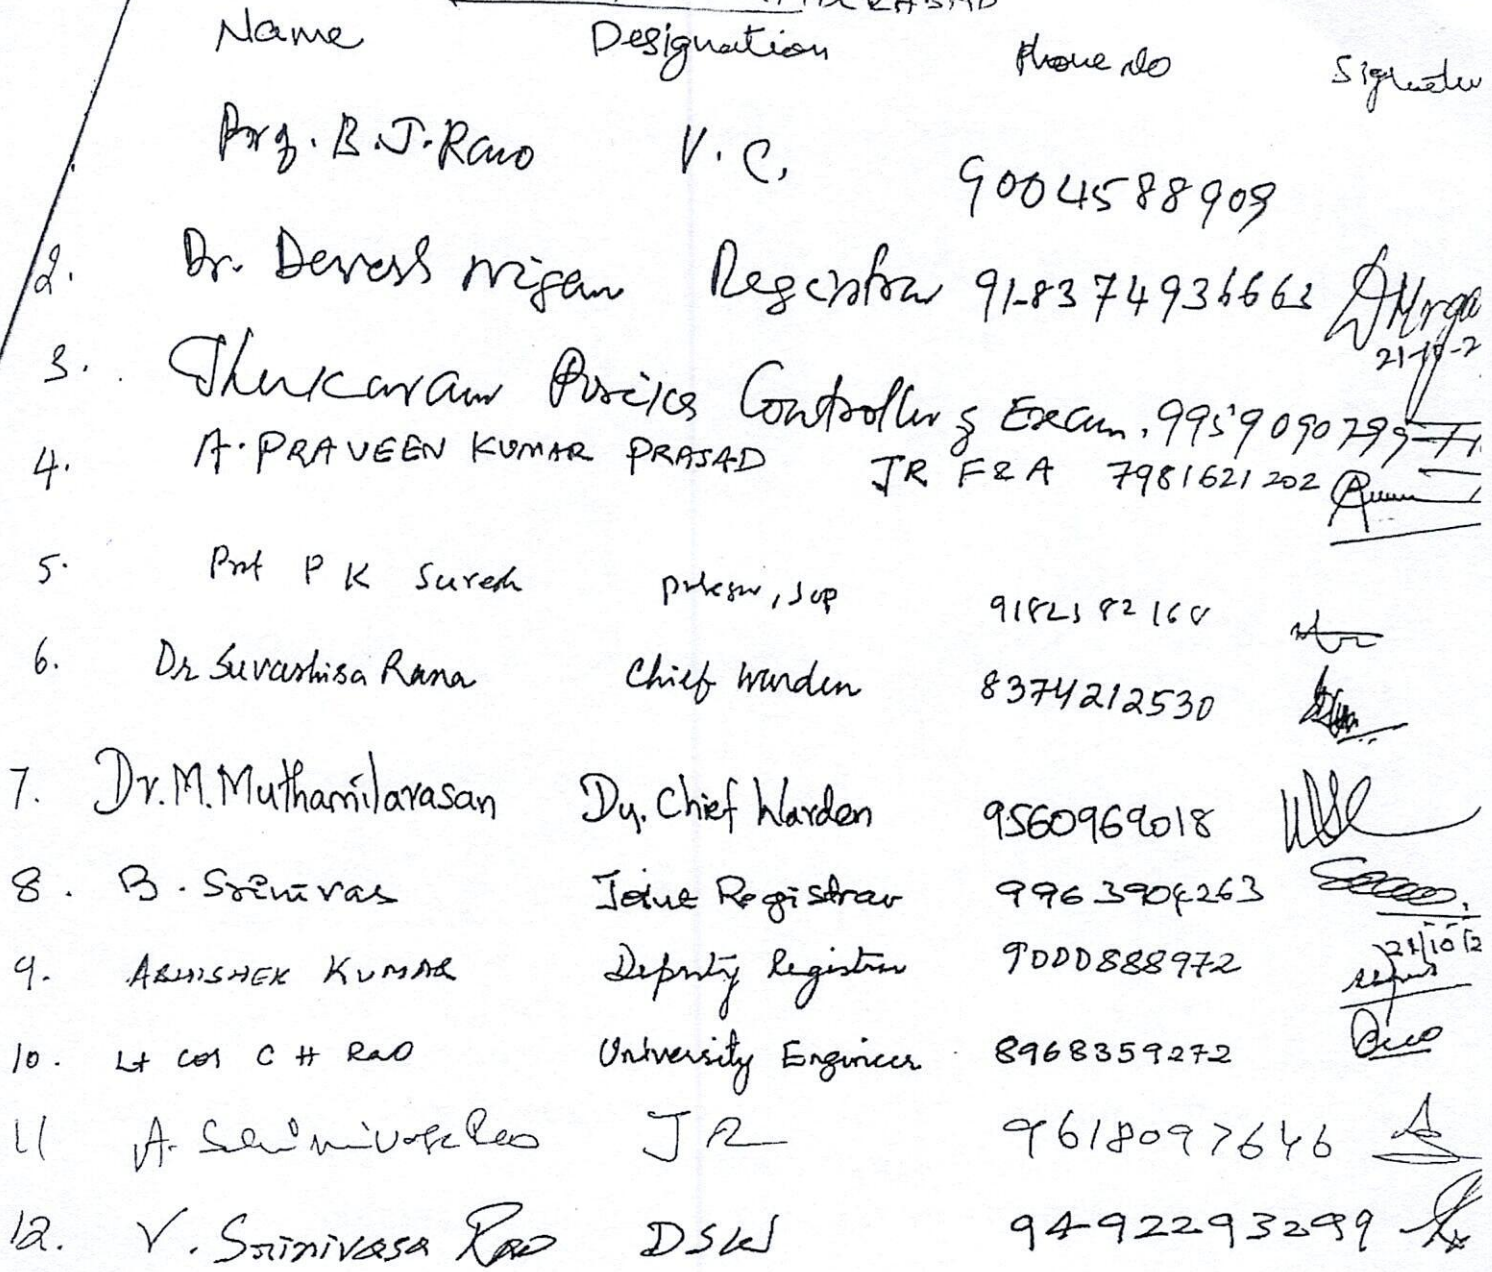 Name Designation Phone No Signatu
Prof. B.J. Rao V.C. 9004588909
2. Dr. Devesh Nigam Registrar 91-8374936663
3. Controller of Exam. 9959090799
4. A. PRAVEEN KUMAR PRASAD JR F&A 7981621202
5. Prof P K Suresh
6. Dr Suvashisa Rana Chief Warden 8374212530
7. Dr. M. Muthamilarasan Dy. Chief Warden 9560969018
8. B. Srinivas Joint Registrar 9963904263
21/10/2
9. ABHISHEK KUMAR Deputy Registrar 9000888972
10. Lt Col C H Rao University Engineer 8968359272
11 A. Srinivasa Rao JR 9618097646
12. V. Srinivasa Rao DSW 9492293299